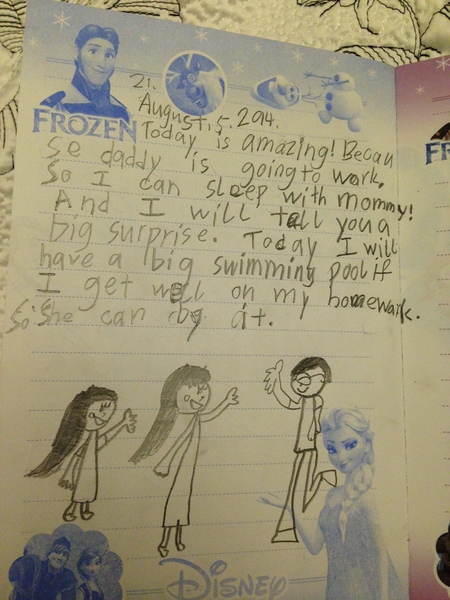 21.
August, 5, 2014.
FROZEN
Today is amazing! Becau
se daddy is going to work,
So I can sleep with mommy!
And I will tell you a
big surprise. Today I will
have a big swimming pool if
I get well on my homework.
So she can by it.
DISNEY
FR